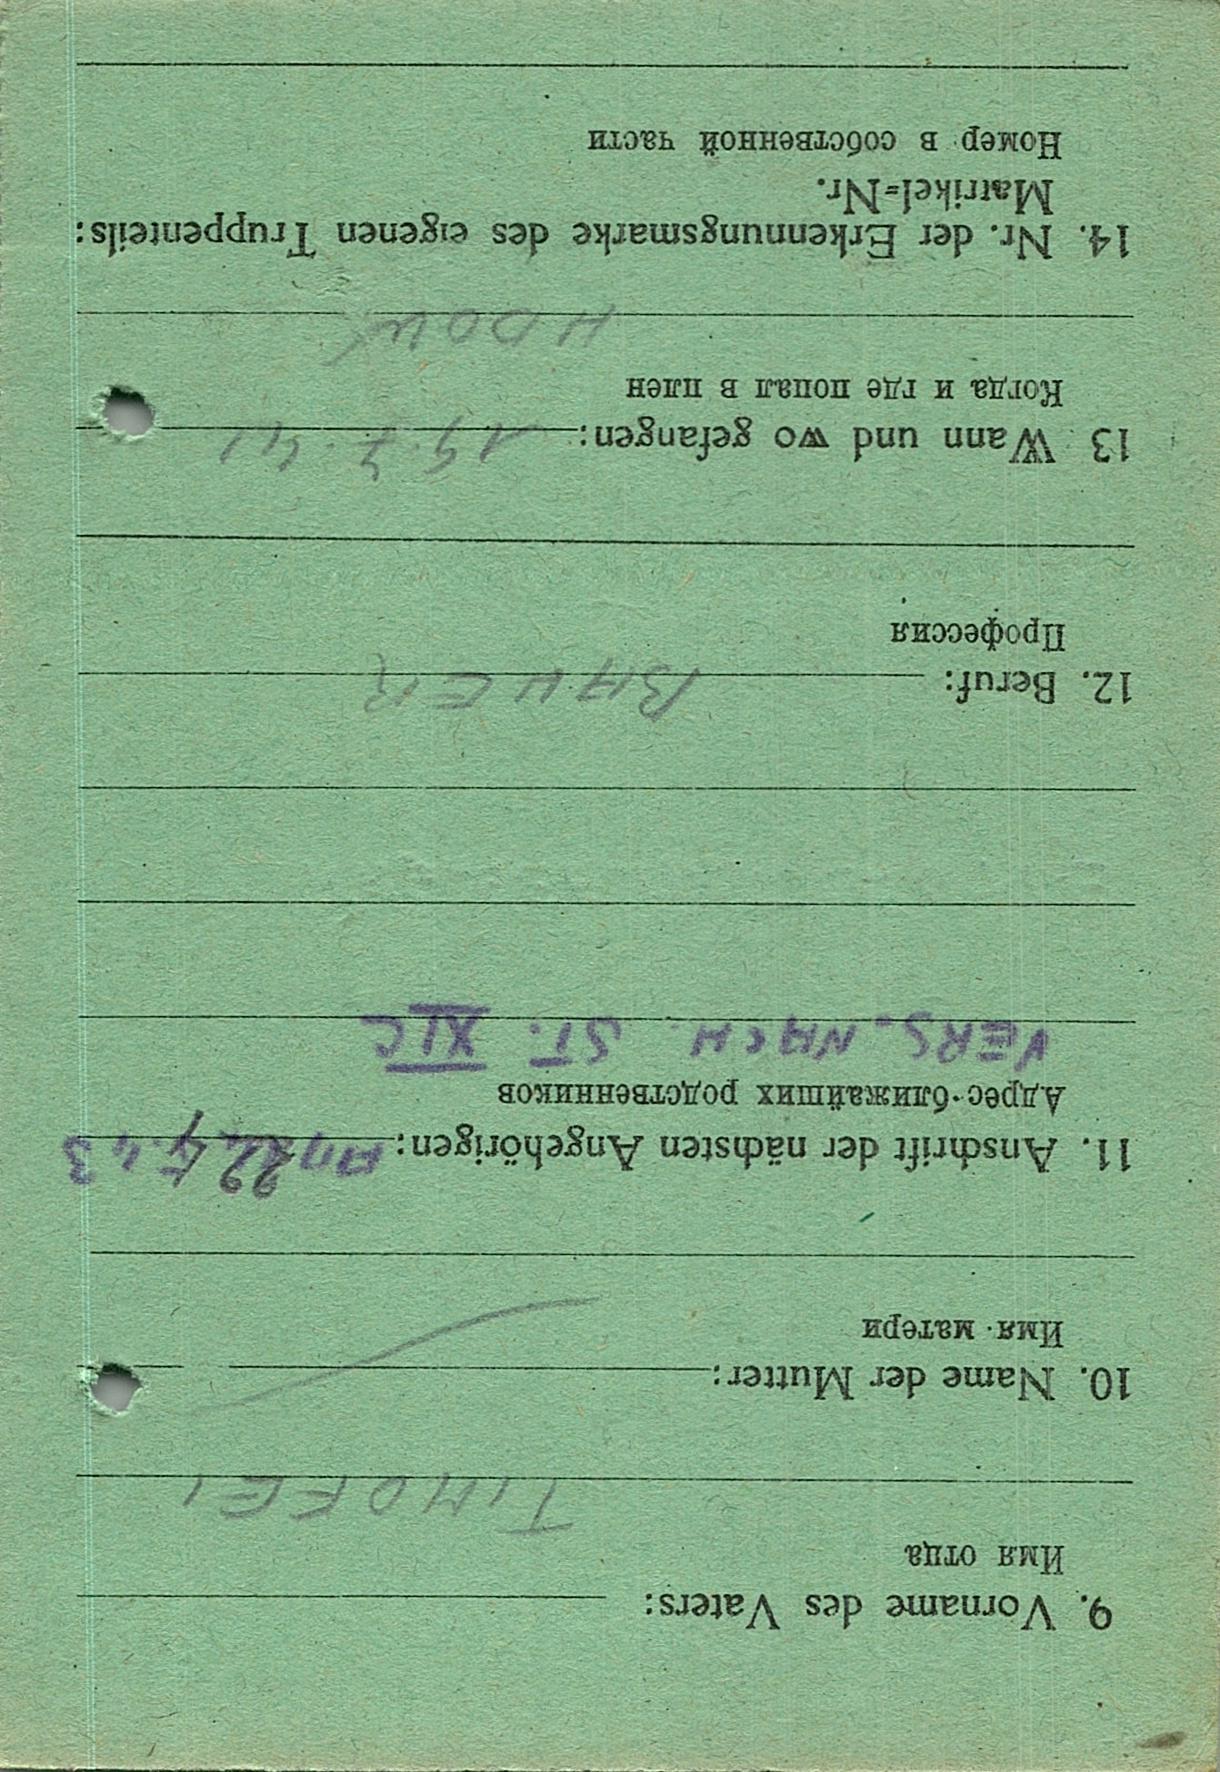 9. Vorname des Vaters:
Имя отца
TIMOFEI
10. Name der Mutter:
Имя матери
11. Anschrift der nächsten Angehörigen: AM 22.5.43
Адрес ближайших родственников
VERS. NACH ST. XI C
12. Beruf: BAUER
Профессия
13 Wann und wo gefangen: 15.7.41
Когда и где попал в плен
14. Nr. der Erkennungsmarke des eigenen Truppenteils:
Matrikel=Nr.
Номер в собственной части